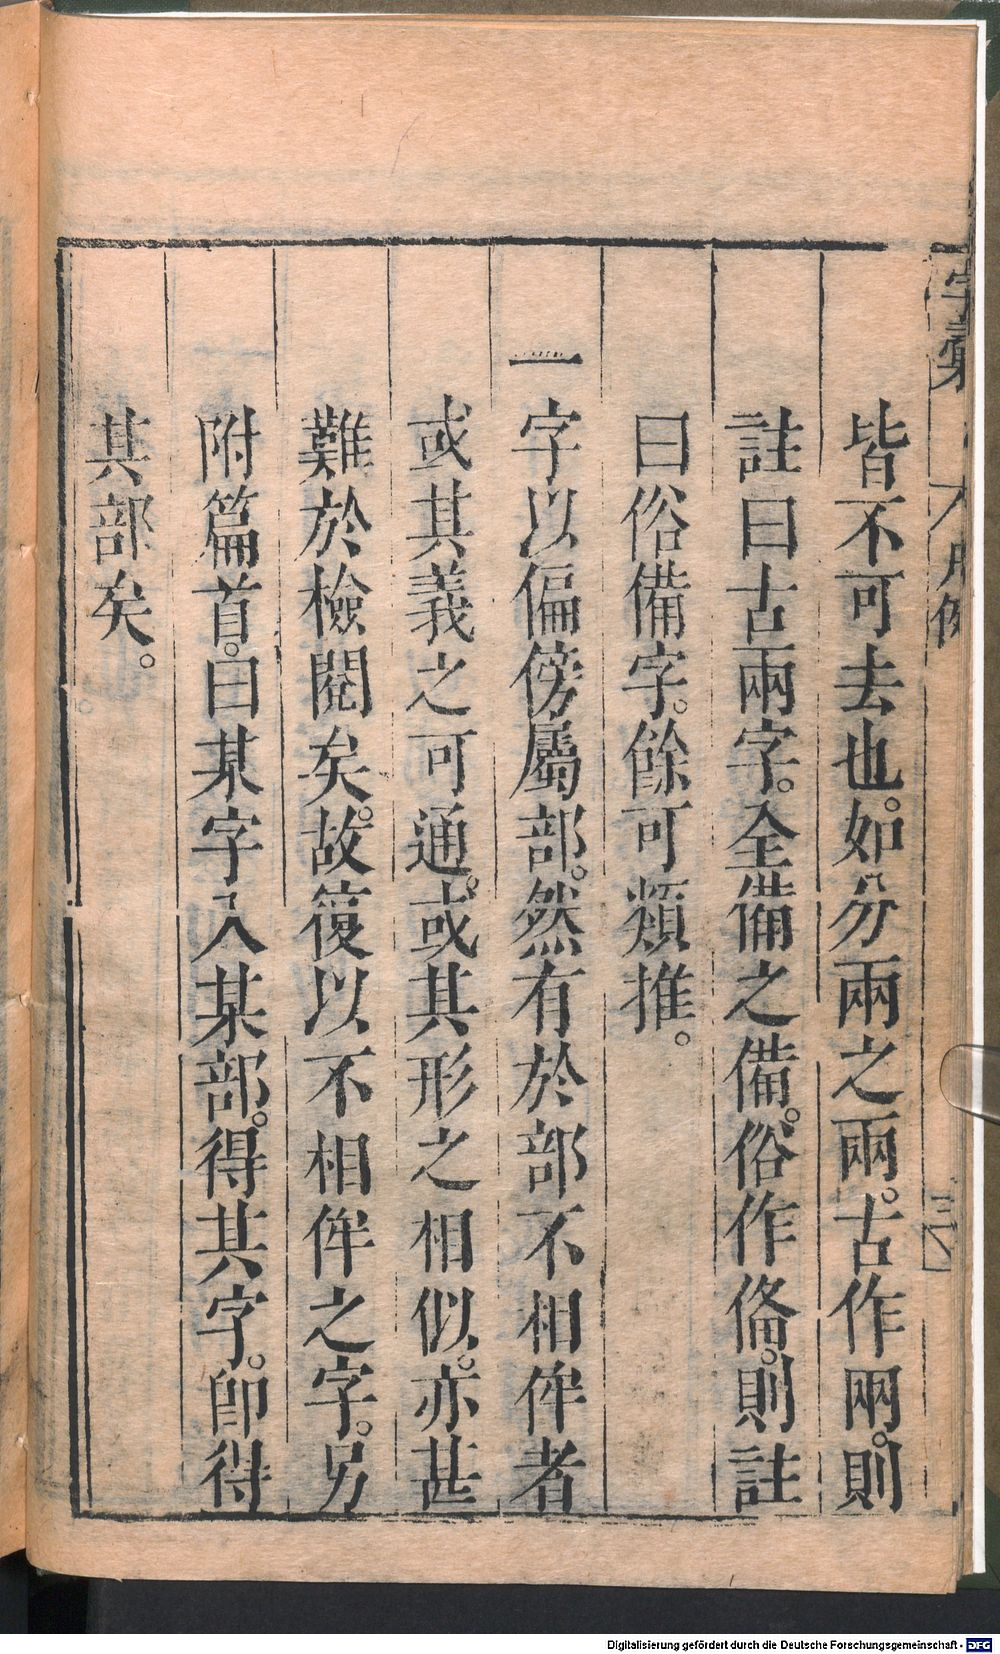 皆不可去也。如分兩之兩。古作㒳。則
註曰古兩字。全備之備。俗作俻。則註
曰俗備字。餘可類推。
一字以偏傍屬部。然有於部不相侔者
或其義之可通。或其形之相似。亦甚
難於檢閱矣。故復以不相侔之字。另
附篇首。曰某字入某部。得其字。卽得
其部矣。
字彙
凡例
三
Digitalisierung gefördert durch die Deutsche Forschungsgemeinschaft - DFG